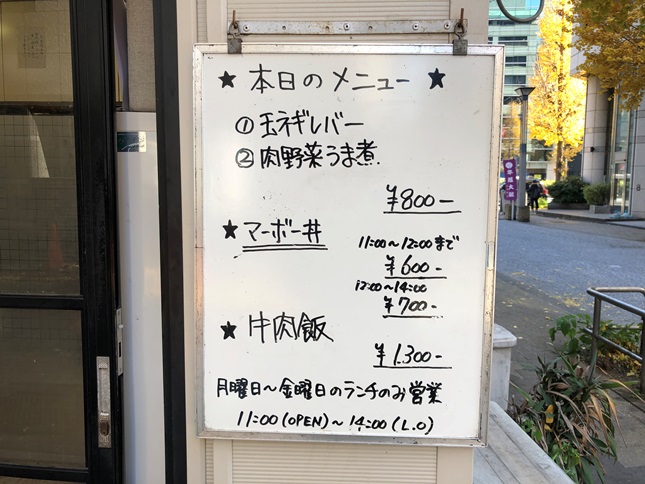 ★ 本日のメニュー ★
① 玉ネギレバー
② 肉野菜うま煮.
¥800-
★ マーボー丼
11:00~12:00まで
¥600-
12:00~14:00
¥700-
★ 牛肉飯
¥1.300-
月曜日~金曜日のランチのみ営業
11:00(OPEN)~14:00(L.O)